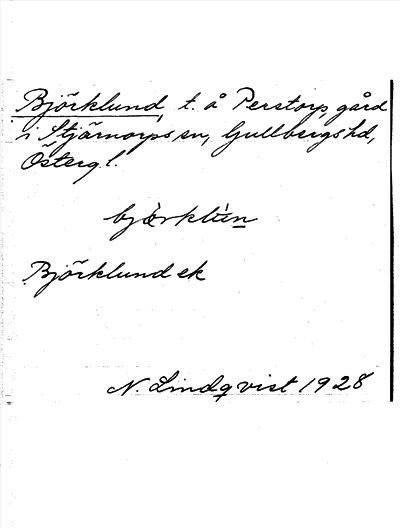 Björklund, t. å Perstorps gård
i Stjärnorps sn, Gullbergs hd,
Österg. l.
bjö̀rklùn
Björklund ek
N. Lindqvist 1928